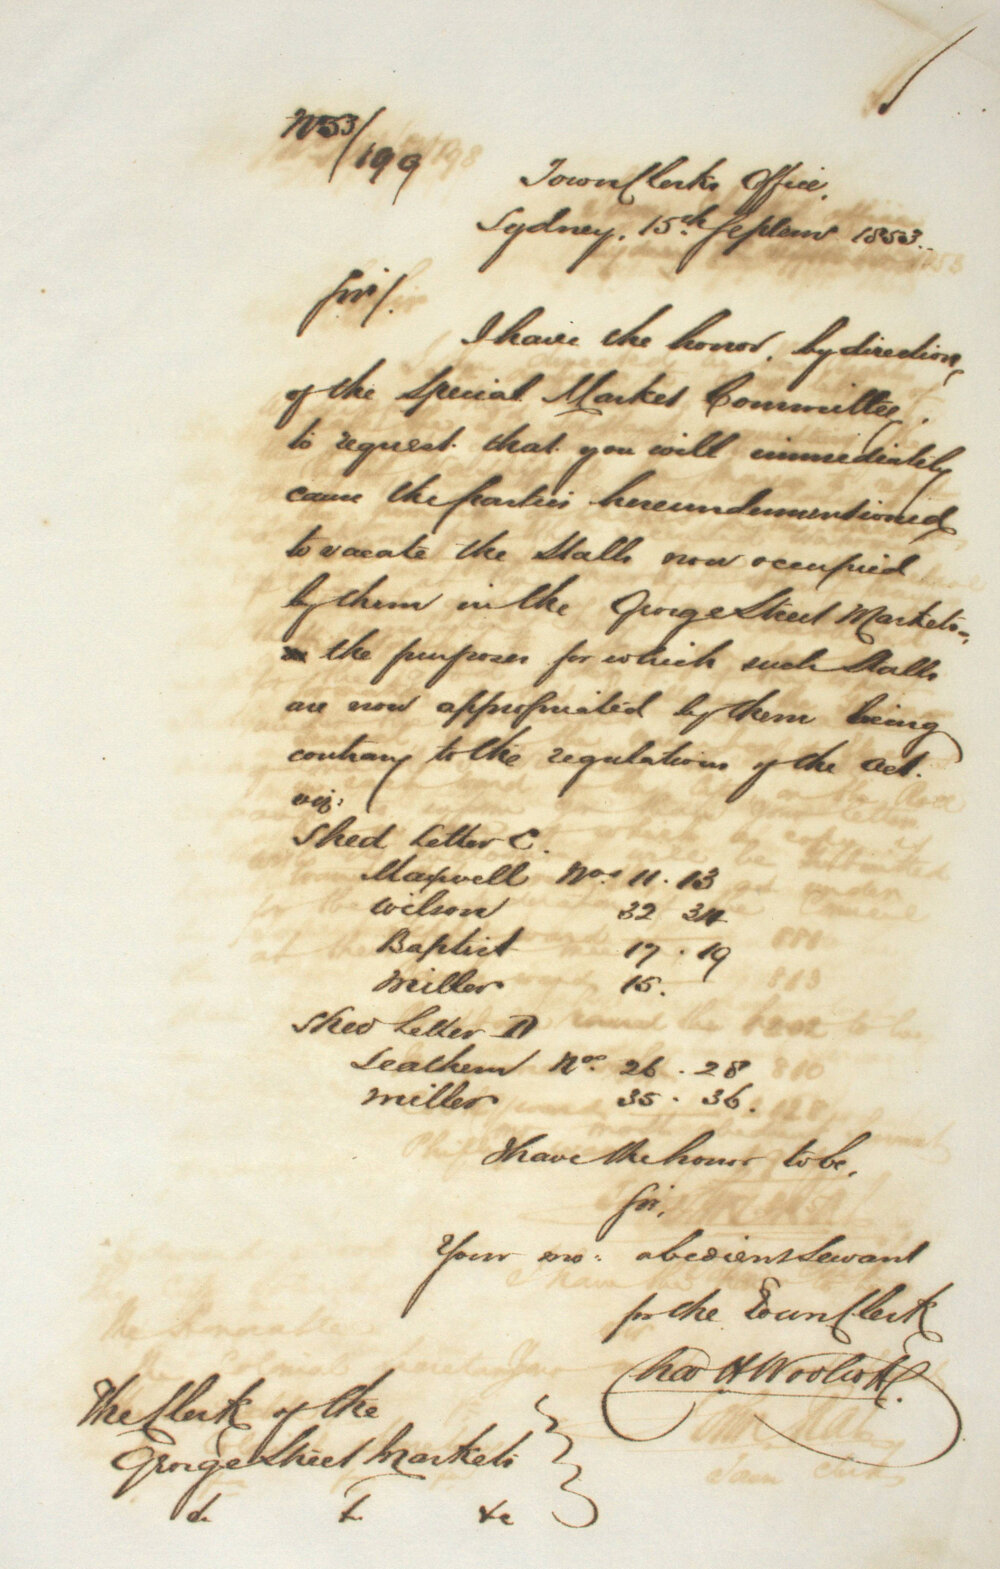 No 53/199
Town Clerks Office,
Sydney, 15th Septemr 1853.
Sir/.
I have the honor, by direction,
of the Special Market Committee,
to request that you will immediately
cause the parties hereundermentioned
to vacate the Stalls now occupied
by them in the George Street Markets-,
the purposes for which such Stalls
are now appropriated by them being
contrary to the regulations of the Act.
viz:
Shed Letter C.
Maxwell Nos 11 . 13
Wilson 32 34
Baptist 17 . 19
Miller 15.
Shed Letter D
Leathem Nos 26 . 28
Miller 35 . 36.
I have the honor to be,
Sir,
Your mo: obedient Servant
for the Town Clerk
Chas H Woolcott.
The Clerk of the
George Street Markets
&c &c &c